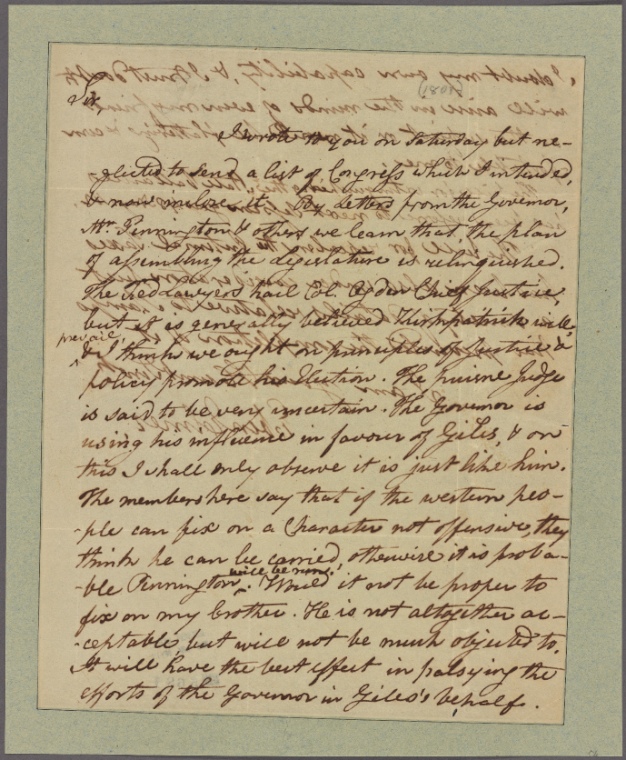 Sir
I wrote to you on Saturday but ne-
glected to send a list of Congress which I intended,
& now inclose it. By Letters from the Governor,
Mr. Pennington & others we learn that the plan
of assembling the Legislature is relinquished.
The Fed Lawyers hail Col. Ogden Chief Justice,
but it is generally believed Kirkpatrick will
prevail,
& I think we ought on principles of Justice &
policy promote his Election. The puisne Judge
is said to be very uncertain. The Governor is
using his influence in favour of Giles, & on
this I shall only observe it is just like him.
The members here say that if the western peo-
-ple can fix on a Character not offensive, they
think he can be carried, otherwise it is proba-
will be run.
-ble Pennington. Would it not be proper to
fix on my brother. He is not altogether ac-
-ceptable, but will not be much objected to.
It will have the best effect in palsying the
efforts of the Governor in Giles's behalf.